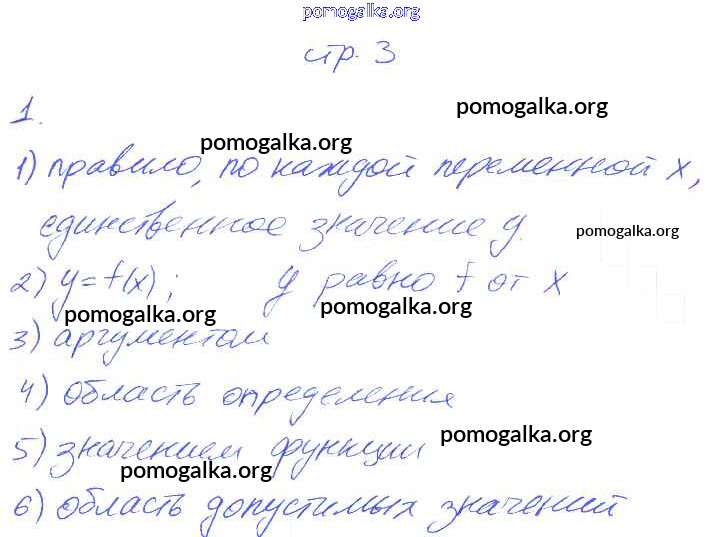 pomogalka.org
стр. 3
1.
pomogalka.org
pomogalka.org
1) правило, по каждой переменной x,
единственное значение y.
pomogalka.org
2) y = f(x) ; y равно f от x
pomogalka.org
pomogalka.org
3) аргументом
4) область определения
5) значением функции
pomogalka.org
pomogalka.org
6) область допустимых значений